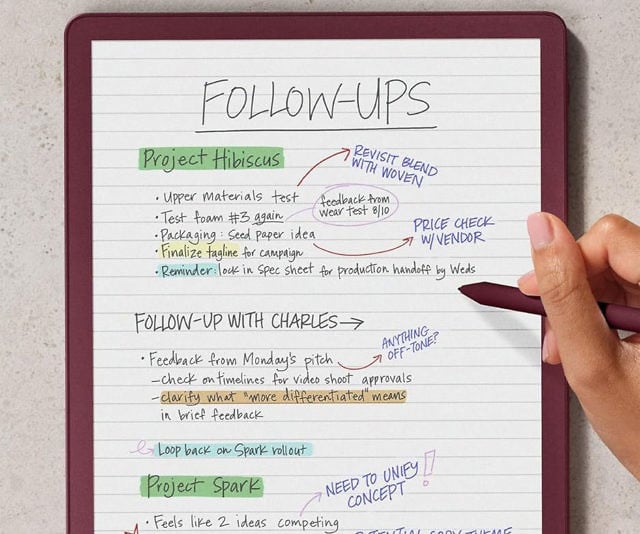 FOLLOW-UPS
Project Hibiscus
REVISIT BLEND
WITH WOVEN
• Upper materials test
• Test foam #3 again
feedback from
wear test 8/10
• Packaging: Seed paper idea
PRICE CHECK
W/VENDOR
• Finalize tagline for campaign
• Reminder: lock in spec sheet for production handoff by Weds
FOLLOW-UP WITH CHARLES→
ANYTHING
OFF-TONE?
• Feedback from Monday's pitch
– check on timelines for video shoot approvals
– clarify what "more differentiated" means
in brief feedback
Loop back on Spark rollout
Project Spark
NEED TO UNIFY
CONCEPT!
• Feels like 2 ideas competing